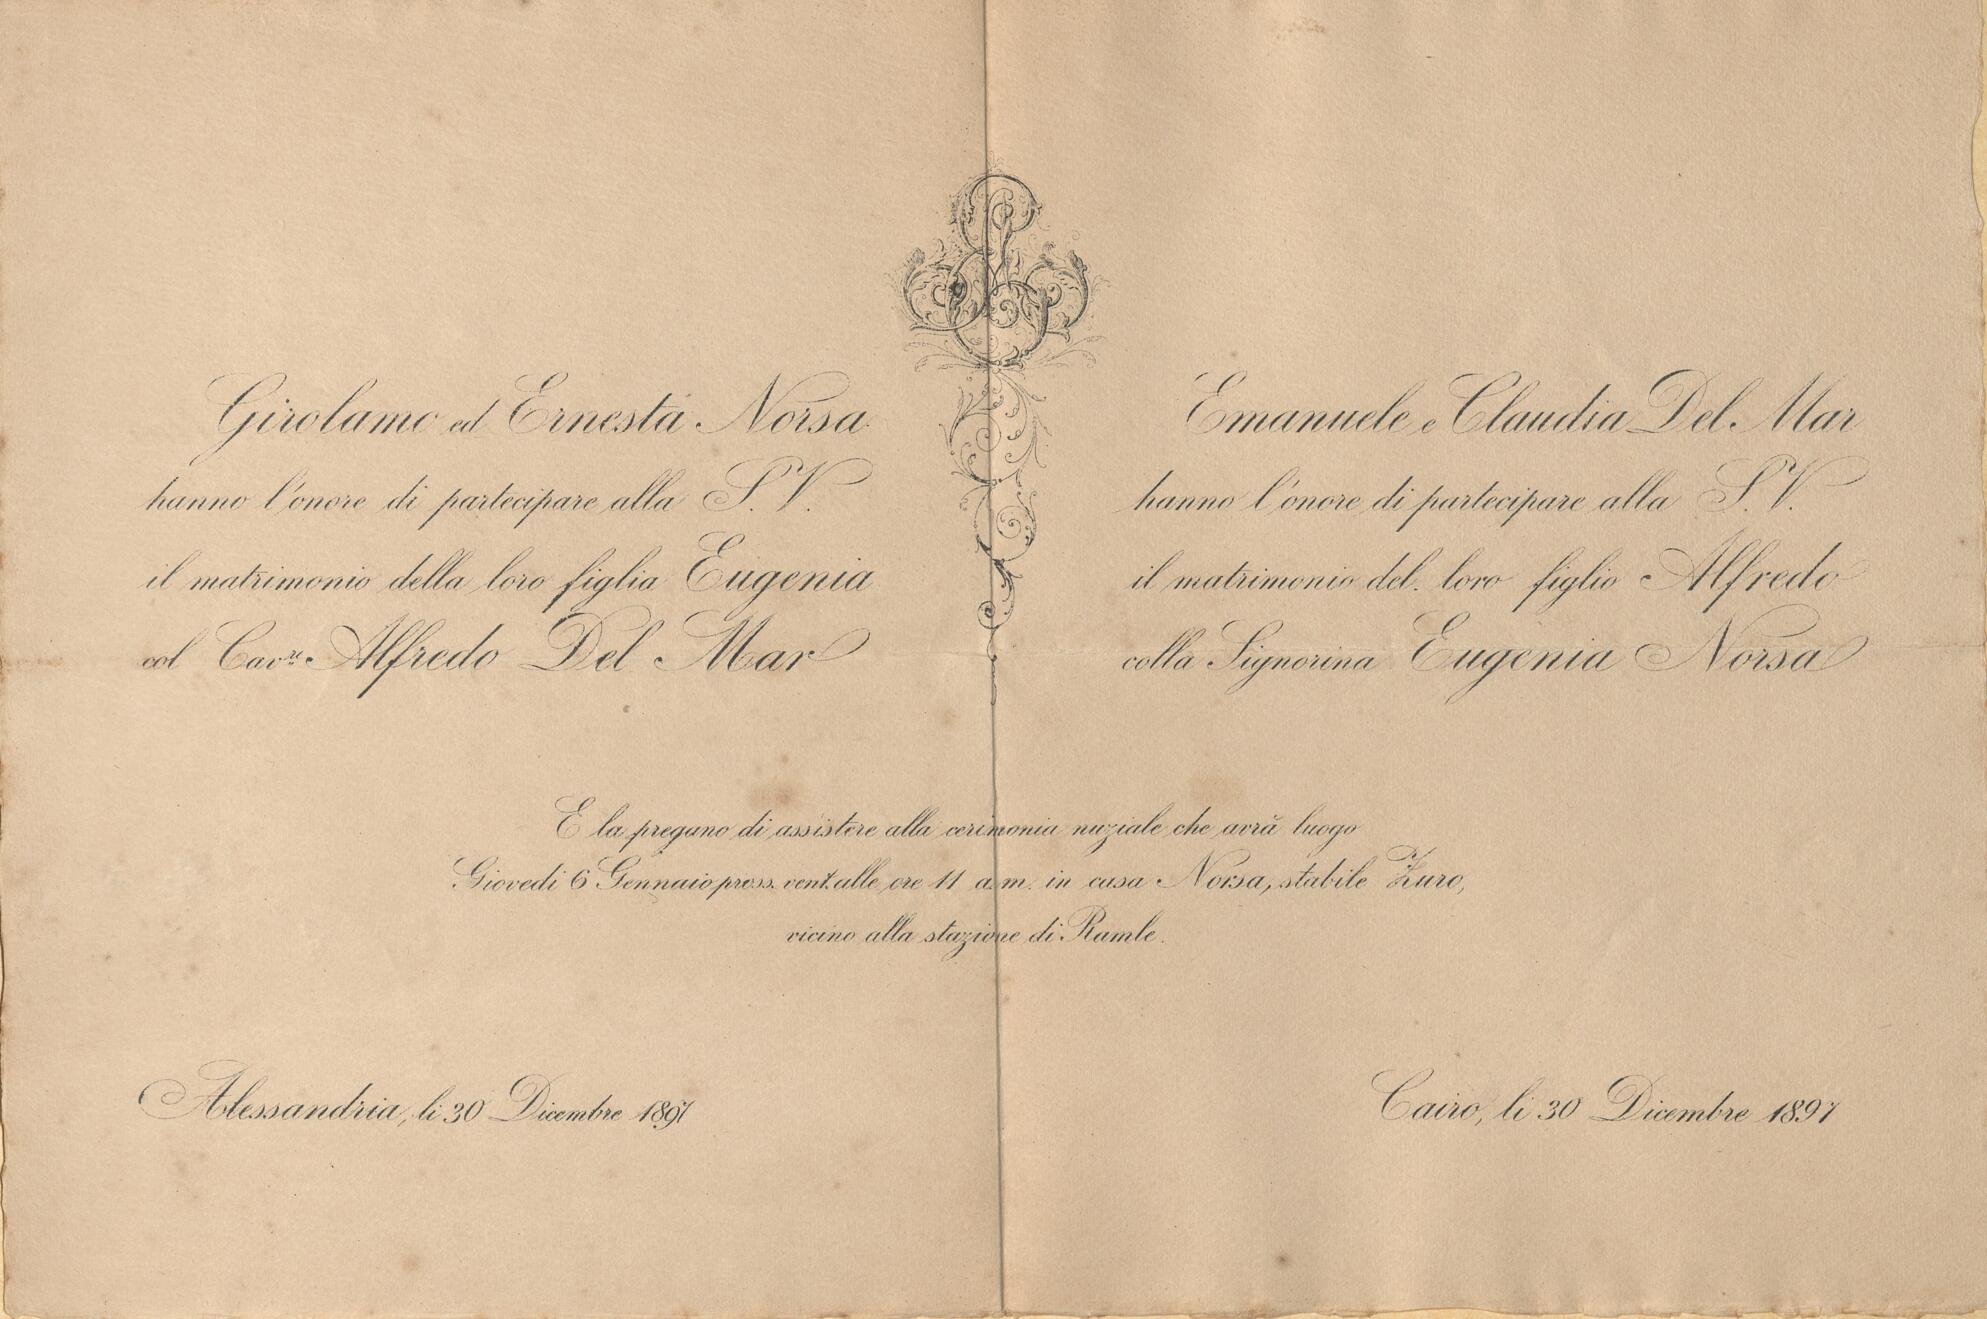 Girolamo ed Ernesta Norsa
hanno l'onore di partecipare alla S. V.
il matrimonio della loro figlia Eugenia
col Cav.re Alfredo Del Mar
Emanuele e Claudia Del Mar
hanno l'onore di partecipare alla S. V.
il matrimonio del loro figlio Alfredo
colla Signorina Eugenia Norsa
E la pregano di assistere alla cerimonia nuziale che avrà luogo
Giovedi 6 Gennaio pross. vent. alle ore 11 a.m. in casa Norsa, stabile Zuro,
vicino alla stazione di Ramle.
Alessandria, li 30 Dicembre 1897
Cairo, li 30 Dicembre 1897